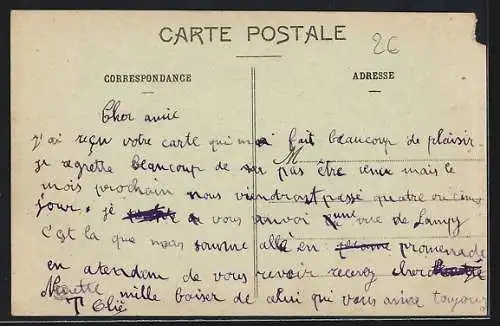 CARTE POSTALE
26
CORRESPONDANCE
ADRESSE
Cher amie
j'ai reçu votre carte qui m'a fait beaucoup de plaisir
je regrette beaucoup de pas être venu mais le
M
mois prochain nous viendront passé quatre ou cinq
jour. je vous anvoi une vue de Lampy
c'est la que nous somme allé en promenade
en atendam de vous revoir recevez cher
mille baiser de celui qui vous aime toujour